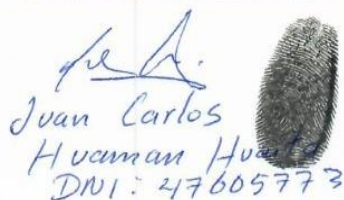 Juan Carlos
Huaman
DNI: 47605773